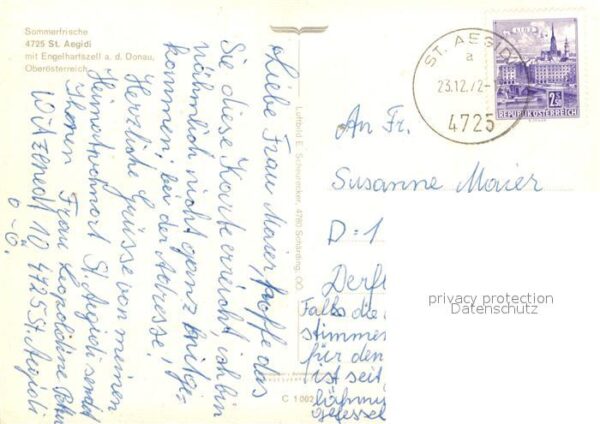 Sommerfrische
4725 St. Aegidi
mit Engelhartszell a. d. Donau,
Oberösterreich
Liebe Frau Maier, hoffe das
Sie diese Karte erreicht, ich bin
nähmlich nicht ganz mitge-
kommen, bei der Adresse!
Herzliche Grüsse von meinen
Heimatwohnort St. Aegidi sendet
Ihnen Frau Leopoldine
Witzenedt 10 4725 St. Aegidi
O.-Ö.
Luftbild E. Scheurecker, 4780 Schärding, OÖ.
C 1002
ST. AEGIDI
a
23.12.72-
4725
LINZ
2.50
REPUBLIK ÖSTERREICH
An Fr.
Susanne Maier
D=1
Derf
Falls die
stimmen
für den
ist seit
privacy protection
Datenschutz